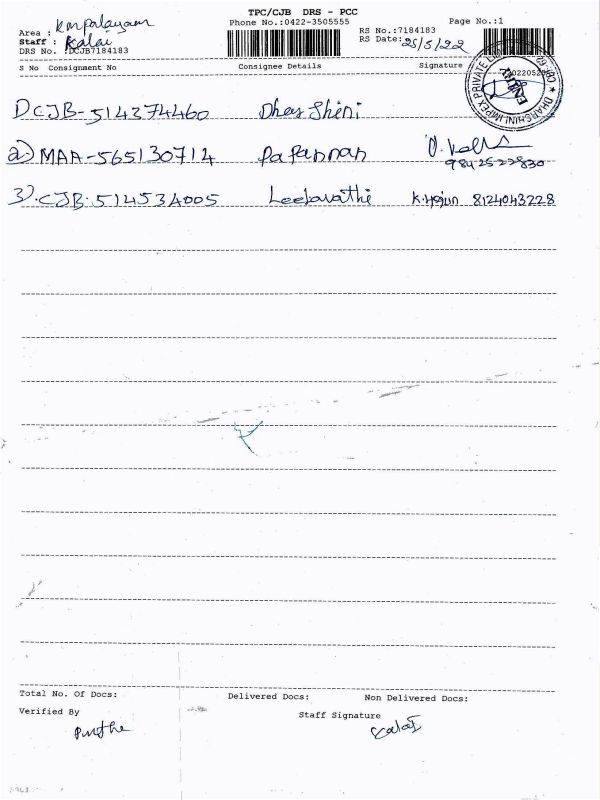 TPC/CJB DRS - PCC
Phone No.:0422-3505555
Page No.:1
Area : kmpalayam
Staff : Kalai
DRS No. :DCJB7184183
RS No.:7184183
RS Date: 25/5/22
S No Consignment No Consignee Details Signature
DHARSHINI IMPEX PRIVATE
ENTRY
1) CJB-514374460 Dhar Shini
2) MAA-565130714 Papannan 98425-22830
3). CJB-514534005 Leelavathi 8124043228
Total No. Of Docs: Delivered Docs: Non Delivered Docs:
Verified By Staff Signature
Kalai